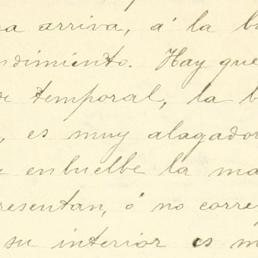 ra arriva, á la b
ndimiento. Hay que
e temporal, la b
, es muy alagador
e enbuelbe la ma
presentan, ó no corre
su interior es m